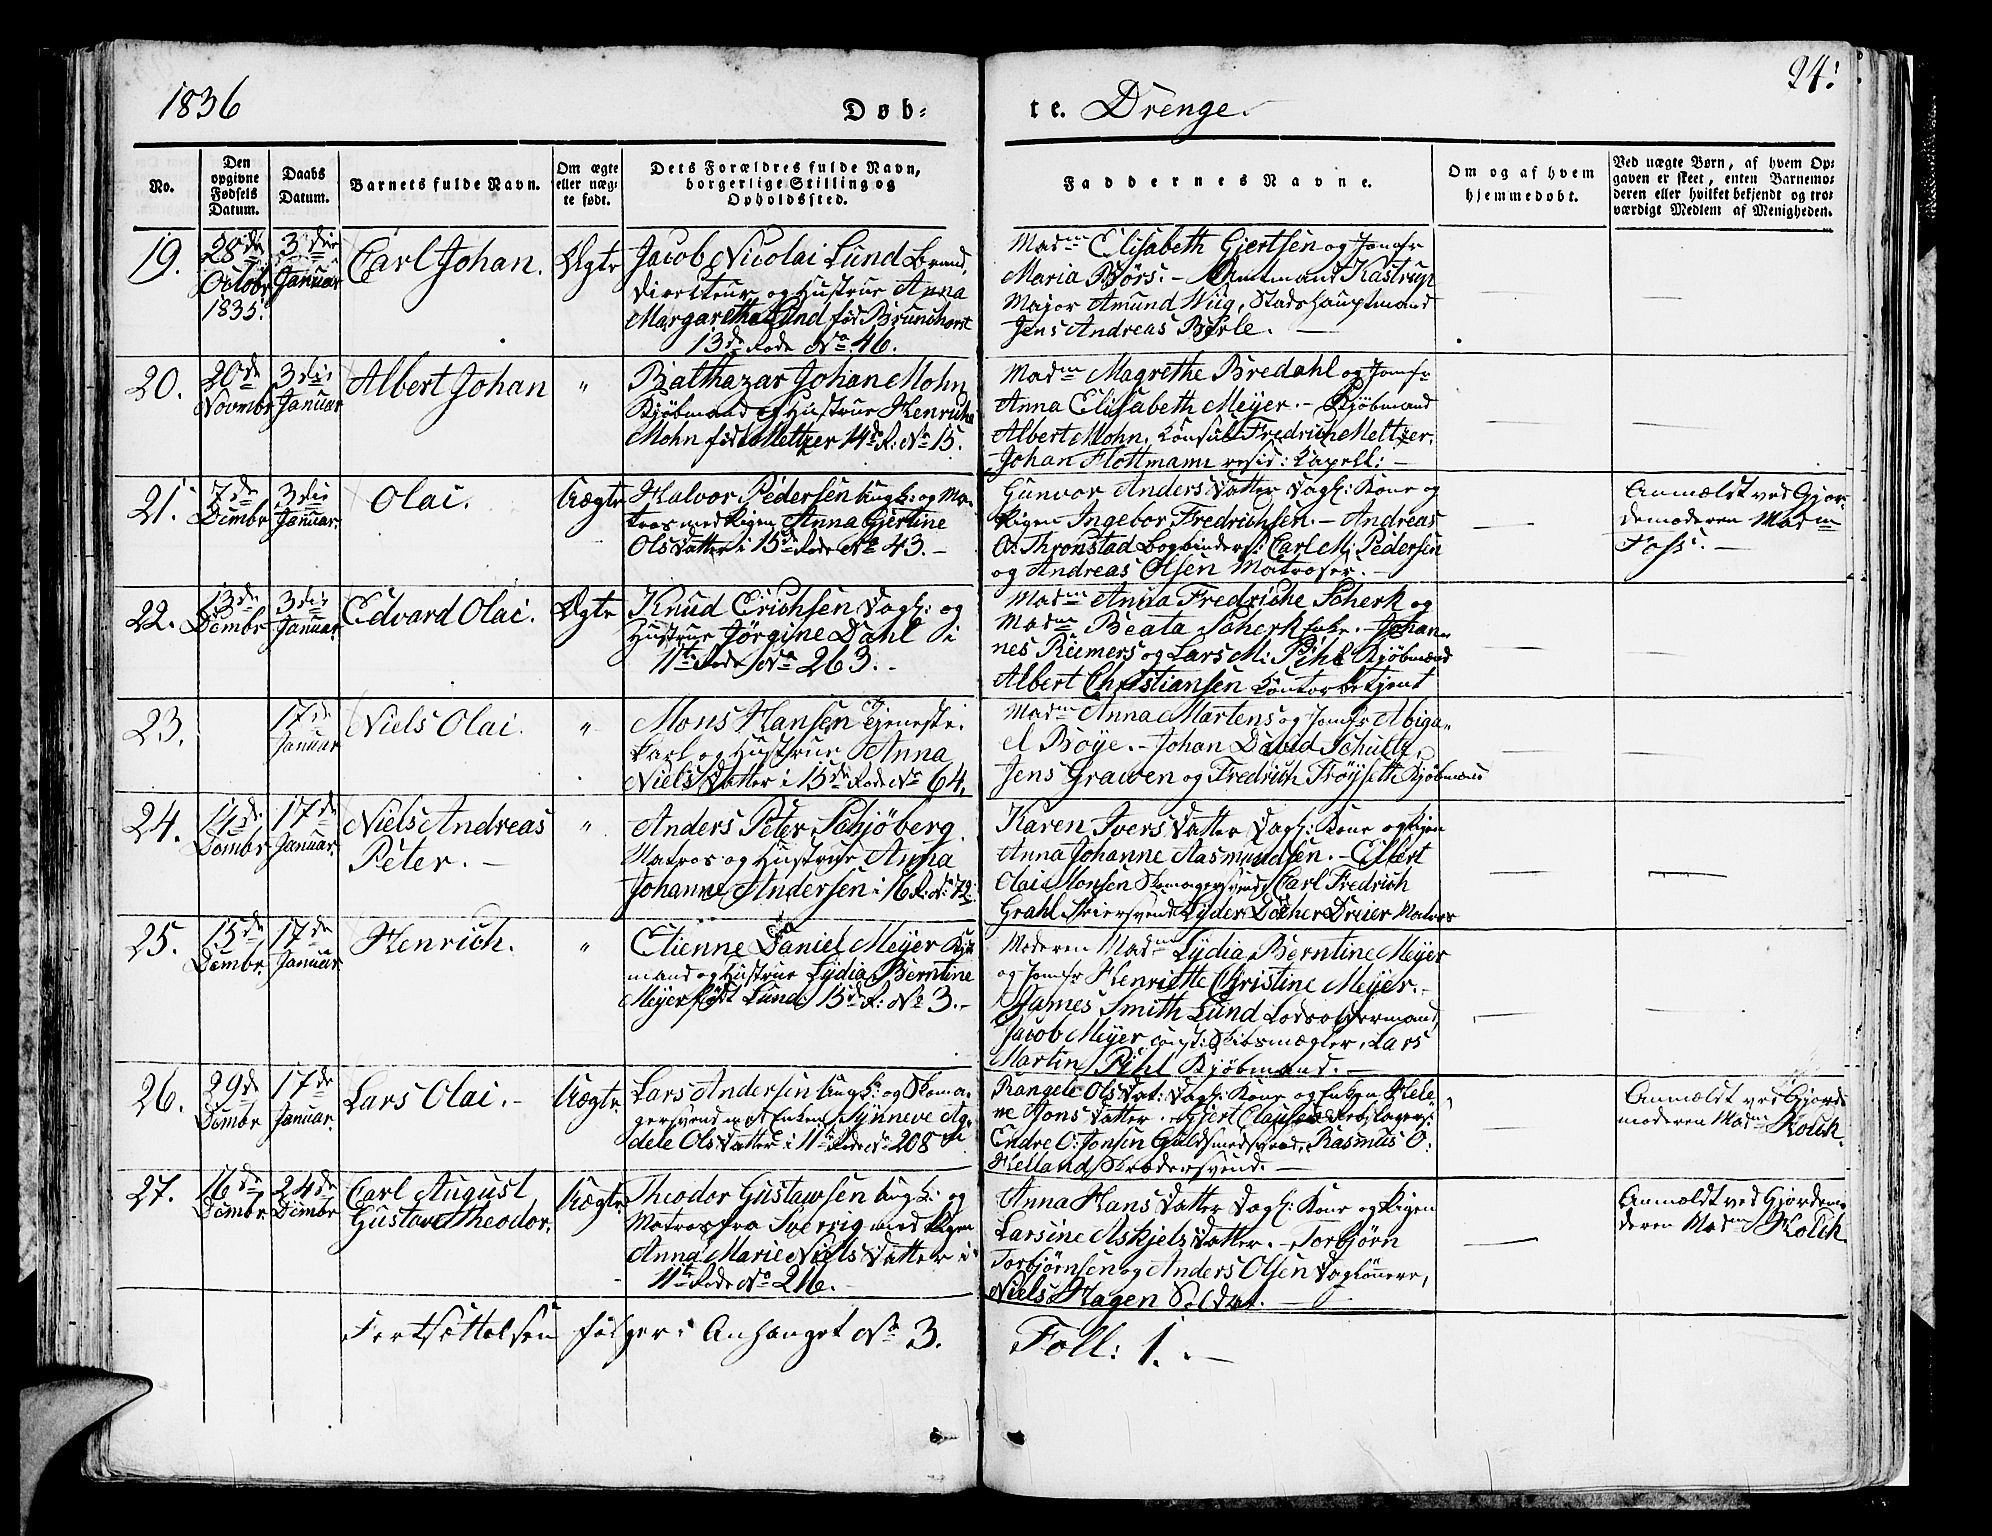 1836
Døb-
te. Drenge.
24:
No.
Den opgivne Fødsels Datum.
Daabs Datum.
Barnets fulde Navn.
Om ægte eller uæg-te født.
Dets Forældres fulde Navn, borgerlige Stilling og Opholdssted.
Faddernes Navne.
Om og af hvem hjemmedøbt.
Ved uægte Børn, af hvem Op-gaven er skeet, enten Barnemo-deren eller hvilket bekjendt og tro-værdigt Medlem af Menigheden.
19.
28de
Octobr
1835.
3die
Januar
Carl Johan.
Ægte
Jacob Nicolai Lund Brand,
directeur og Hustrue Anna
Margaretha Lund fød Brunchorst
13de Rode No 46.
Madm Elisabeth Giertsen og Jomfr
Maria Börs. - Amtmand Kastrup
Major Amund Wiig, Stadshauptmand
Jens Andreas Berle. -
20.
20de
Novmbr
3die
Januar
Albert Johan
"
Balthazar Johan Mohn
Kjöbmand og Hustrue Henriche
Mohn fød Meltzer 14de R: No 15.
Madm Magrethe Bredahl og Jomfr
Anna Elisabeth Meyer. - Kjöbmand
Albert Mohn, Consul Fredrich Meltzer,
Johan Flottmann resid: Capell: -
21.
7de
Dcmbr
3die
Januar.
Olai.
Uægte
Halvor Pedersen Ungk: og Ma-
tros med Pigen Anna Gjertine
Ols Datter i 15de Rode No 43. -
Gunvor Anders Datter Dagl: Kone og
Pigen Ingebor Fredrichsen. - Andreas
O: Thronstad Bogbinders: Carl M: Pedersen
og Andreas Olsen Matroser. -
Anmældt ved Gjor-
demoderen Madm
Foss. -
22.
13de
Dcmbr
3die
Januar
Edvard Olai.
Ægte
Knud Erichsen Dagl: og
Hustrue Jörgine Dahl i
11te Rode No 263. -
Madm Anna Fredriche Scherk og
Madm Beata Scherk Enke. - Johan-
nes Riemers og Lars M: Pihl Kjöbmænd
Albert Christiansen Contorbetjent
23.
17de
Januar
Niels Olai.
"
Mons Hansen Tjeneste-
karl og Hustrue Anna
Niels Datter i 15de Rode No 64.
Madm Anna Martens og Jomfr Abiga-
el Böye. - Johan David Schultz,
Jens Grawen og Fredrich Tröyseth Kjöbmænd
24.
14de
Dcmbr
17de
Januar.
Niels Andreas
Peter. -
"
Anders Peter Schjöberg
Matros og Hustrue Anna
Johanne Andersen i 16 R: No 72
Karen Ivers Datter Dagl: Kone og Pigen
Anna Johanne Aasmundsen. - Eilert
Olai Monsen Skomagersvend, Carl Fredrich
Grahl Skriersvend, Lyder Döcher Dreier Matros
25.
15de
Dcmbr.
17de
Januar.
Henrich.
"
Etienne Daniel Meyer Kjöb-
mand og Hustrue Lydia Berntine
Meyer född Lund. 13de R: No 3. -
Moderen Madm Lydia Berntine Meyer
og Jomfr Henriette Christine Meyer. -
James Smith Lund Lodsoldermand,
Jacob Meyer const: Skibsmægler, Lars
Martin Pihl Kjöbmand. -
26.
29de
Dcmbr
17de
Januar.
Lars Olai. -
Uægte
Lars Andersen Ungk: og Skoma-
gersvend med Enken Synneve Ag-
dele Ols Datter i 11te Rode No 208
Rangele Ols Dat: Dagl: Kone og Enken Hele-
ne Hans Datter. - Gjert Clausen
Endre O: Jonsen Guldsmedsvend, Rasmus O:
Helland Skrædersvend. -
Anmældt ved Gjorde
moderen Madm Kolck.
27.
16de
Dcmbr.
24de
Dcmbr
Carl August
Gustav Theodor.
Uægte
Theodor Gustawsen Ungk: og
Matros fra Sverrig med Pigen
Anna Marie Niels Datter i
11te Rode No 216. -
Anna Hans Datter Dagl: Kone og Pigen
Larsine Askjels Datter. - Torbjörn
Torbjörnsen og Anders Olsen Daglönnere,
Niels Hagen Soldat. -
Anmældt ved Gjordemo-
deren Madm Kolck
Fortsættelsen følger i Anhanget No 3.
Foll: 1. -